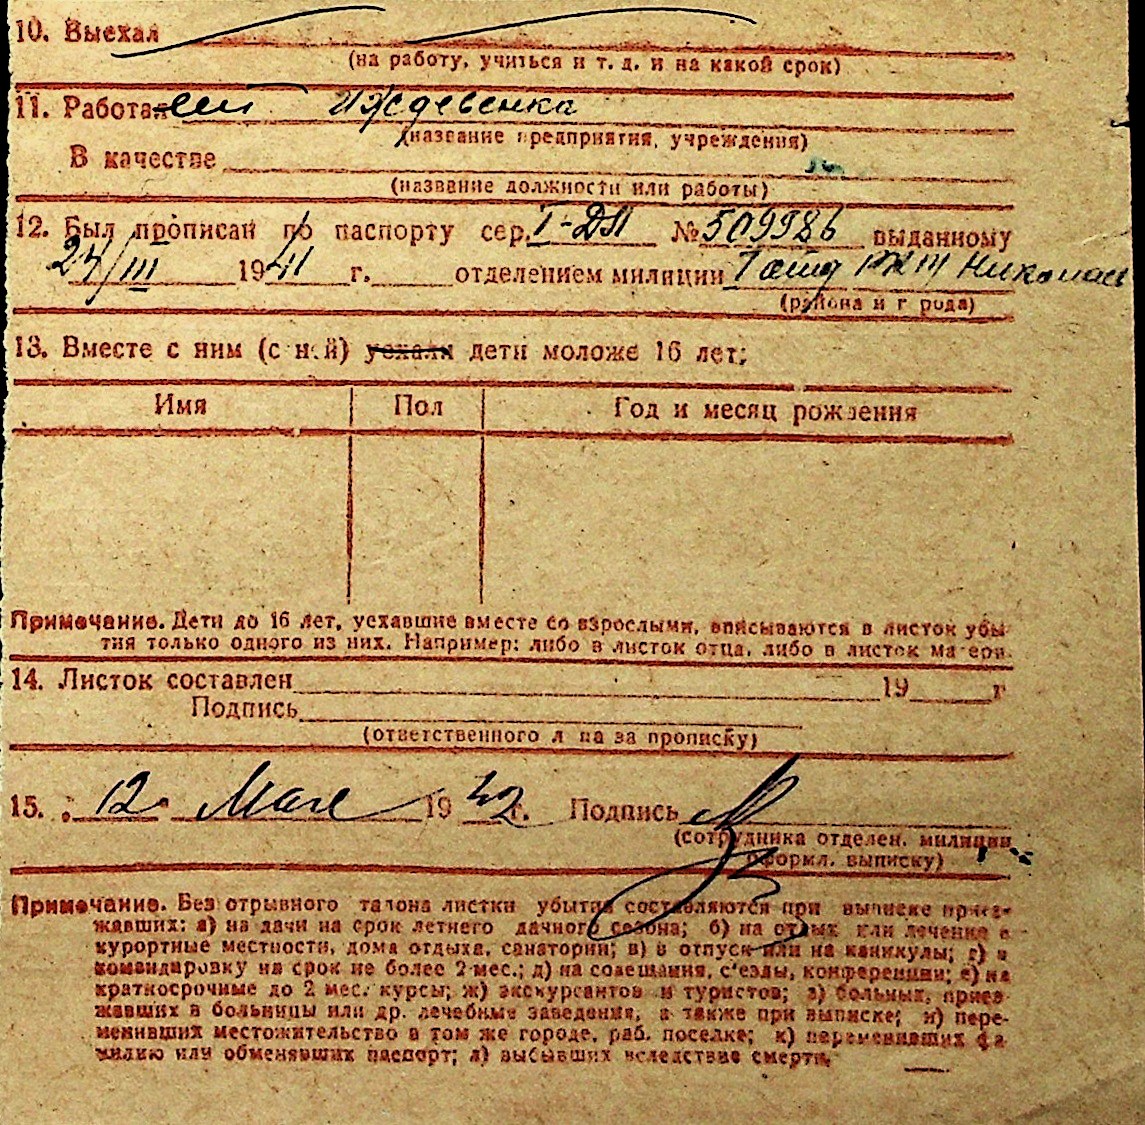 10. Выехал
(на работу, учиться и т. д. и на какой срок)
11. Работает Иждевенка
(название предприятия, учреждения)
В качестве
(название должности или работы)
12. Был прописан по паспорту сер. I-ДП № 509986 выданному
24/III 1941 г. отделением милиции РКМ Николаев
(района и города)
13. Вместе с ним (с ней) уехали дети моложе 16 лет:
Имя Пол Год и месяц рождения
Примечание. Дети до 16 лет, уехавшие вместе со взрослыми, вписываются в листок убы-
тия только одного из них. Например: либо в листок отца, либо в листок матери.
14. Листок составлен 19 г
Подпись
(ответственного лица за прописку)
15. 12 Мая 1942 г. Подпись
(сотрудника отделен. милиции
оформл. выписку)
Примечание. Без отрывного талона листки убытия составляются при выписке приез-
жавших: а) на дачи на срок летнего дачного сезона; б) на отдых или лечение в
курортные местности, дома отдыха, санатории; в) в отпуск или на каникулы; г) в
командировку на срок не более 2 мес.; д) на совещания, с'езды, конференции; е) на
краткосрочные до 2 мес. курсы; ж) экскурсантов и туристов; з) больных, приез-
жавших в больницы или др. лечебные заведения, а также при выписке; и) пере-
менивших местожительство в том же городе, раб. поселке; к) переменивших фа
милию или обменявших паспорт; л) выбывших вследствие смерти.